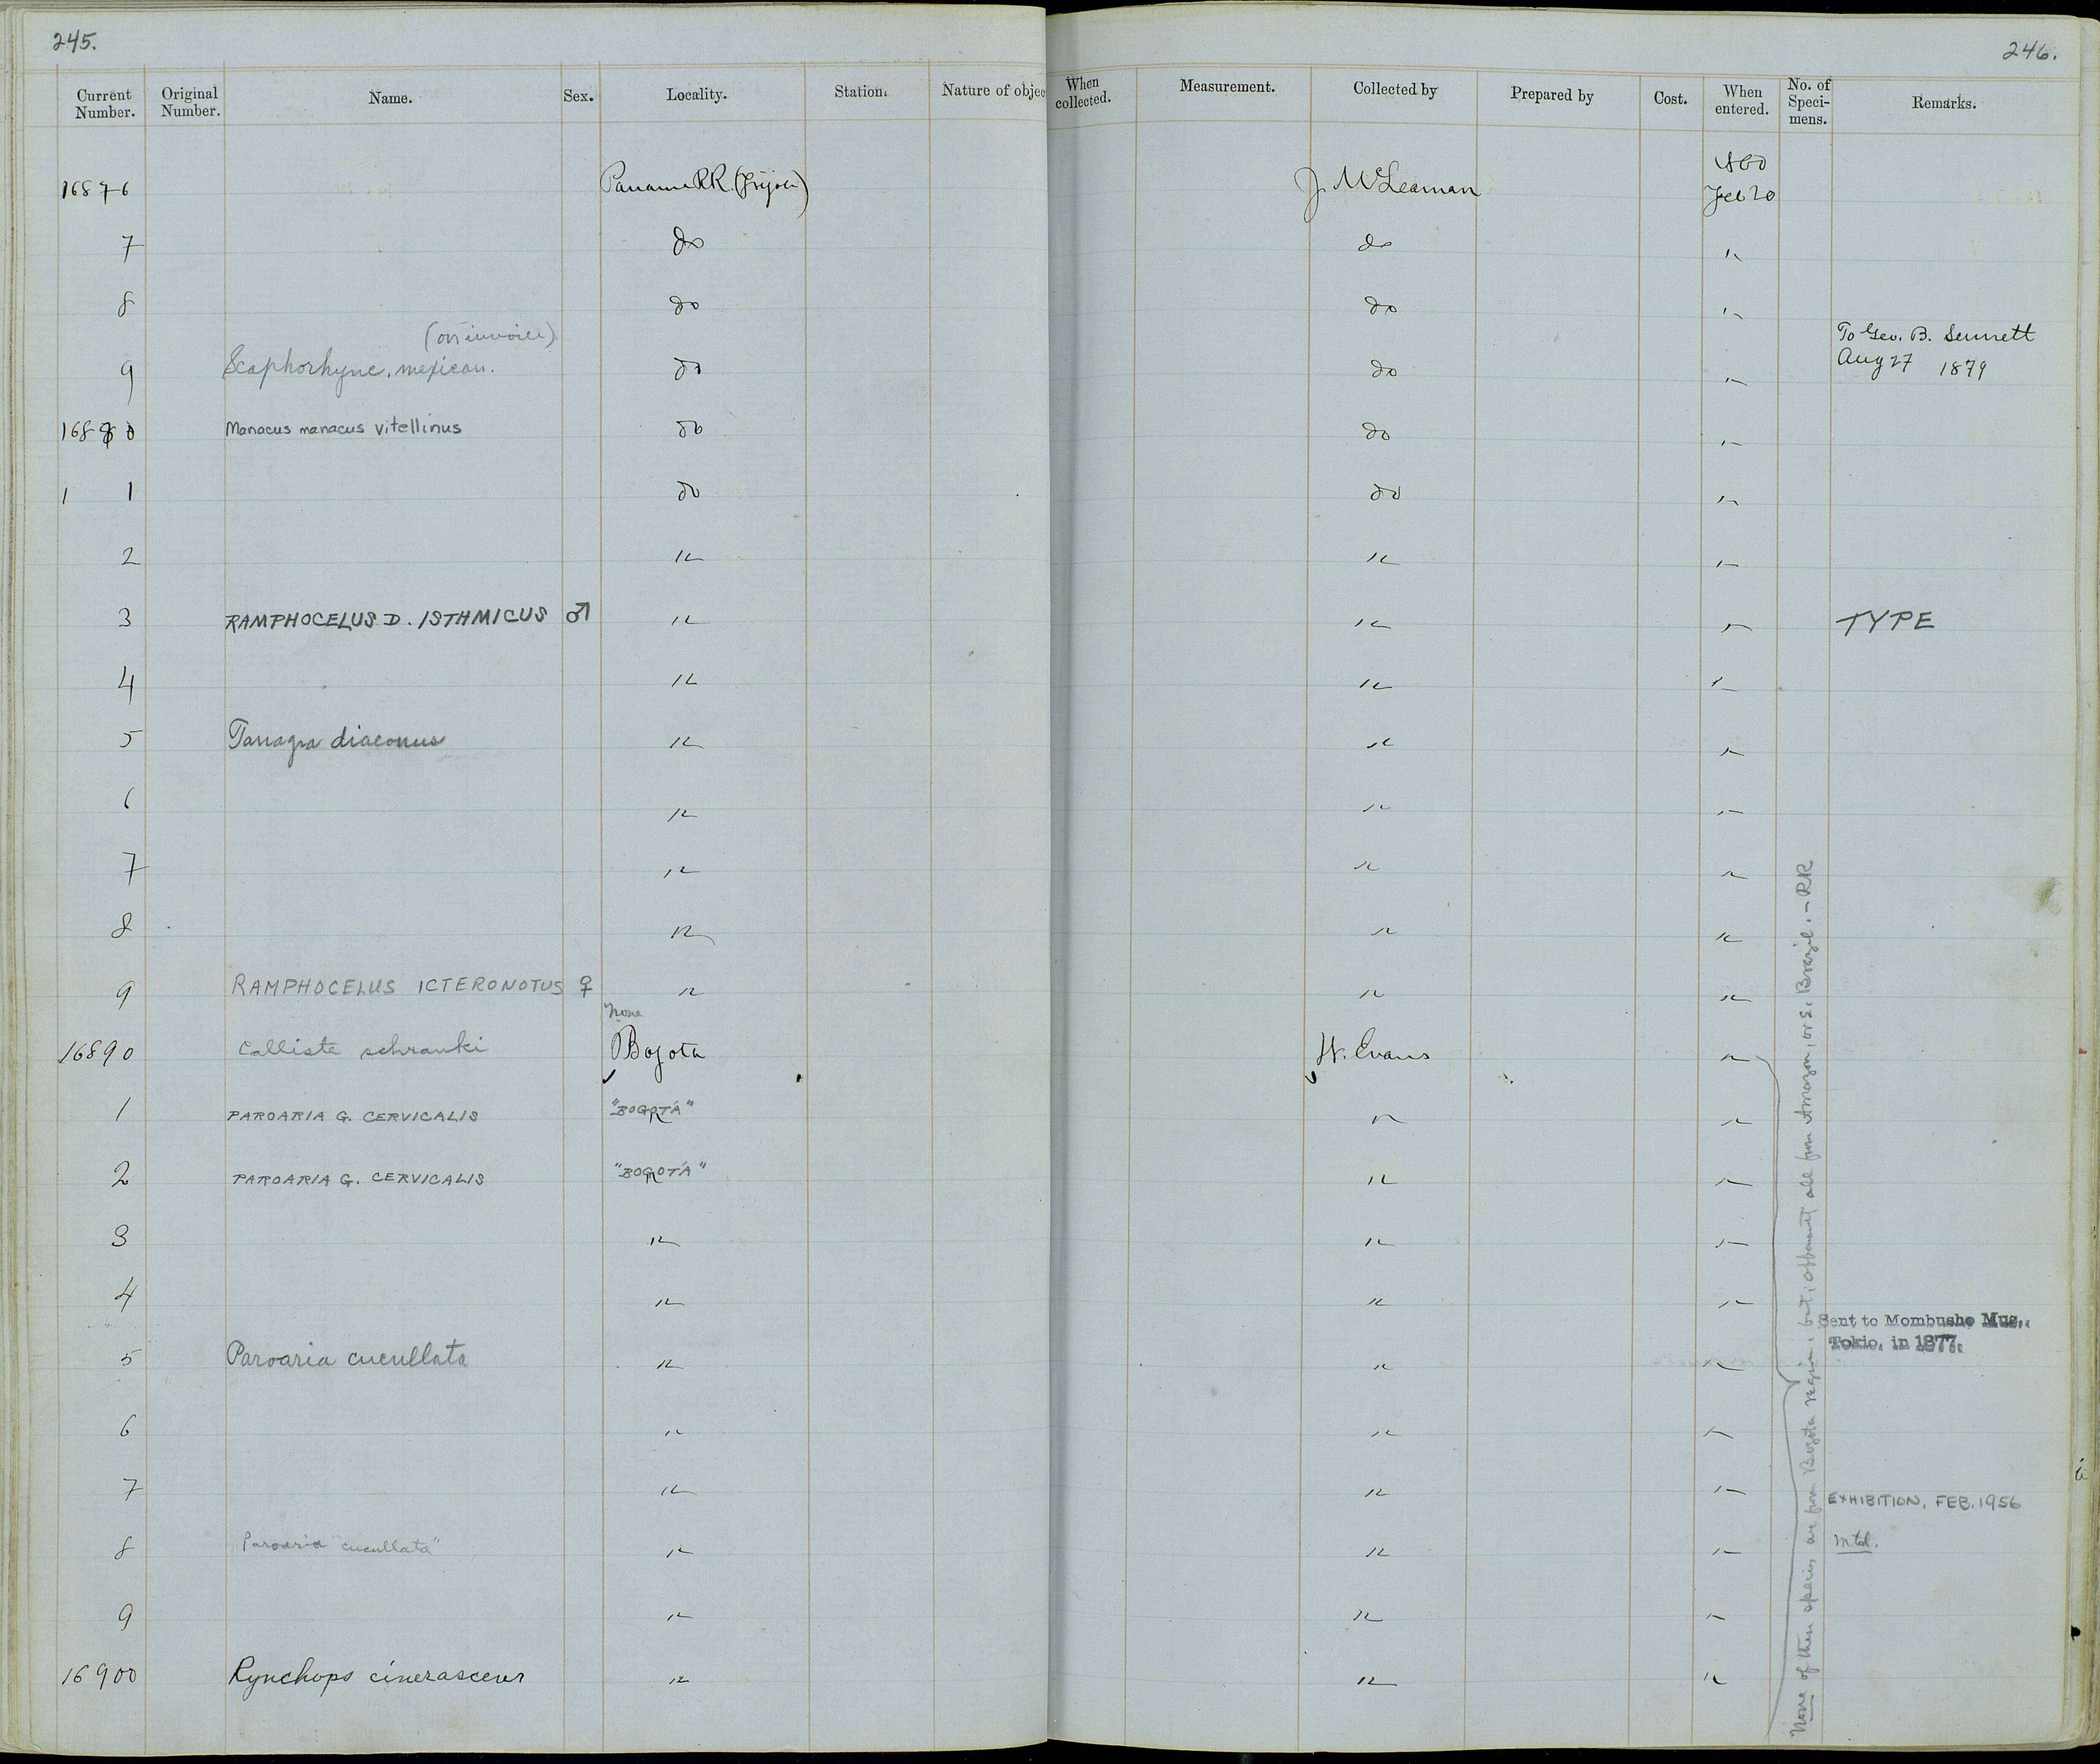 245.
246.
Current Number. Original Number. Name. Sex. Locality. Station. Nature of objec When collected. Measurement. Collected by Prepared by Cost. When entered. No. of Speci-mens. Remarks.
1860
16876 Panama RR. (Frijole) J. McLeaman Feb 20
7 do do "
8 do do "
(on invoice) To Geo. B. Sennett
9 Scaphorhync. mexican. do do " Aug 27 1879
16880 Manacus manacus vitellinus do do "
1 1 do do "
2 " " "
3 RAMPHOCELUS D. ISTHMICUS ♂ " " " TYPE
4 " " "
5 Tanagra diaconus " " "
6 " " "
7 " " "
8 " " "
9 RAMPHOCELUS ICTERONOTUS ♀ " " "
None
16890 Calliste schranki Bogota W. Evans "
1 PAROARIA G. CERVICALIS "BOGOTÁ" " "
2 PAROARIA G. CERVICALIS "BOGOTÁ" " "
3 " " "
4 " " "
Sent to Mombusho Mus., Tokio, in 1877.
5 Paroaria cucullata " " "
6 " " "
7 " " " EXHIBITION, FEB. 1956
8 Paroaria "cucullata" " " " mtd.
9 " " "
16900 Rynchops cinerascens " " "
None of these species are from Bogota region, but, apparent all from Amazon, or S. Brazil. - RR